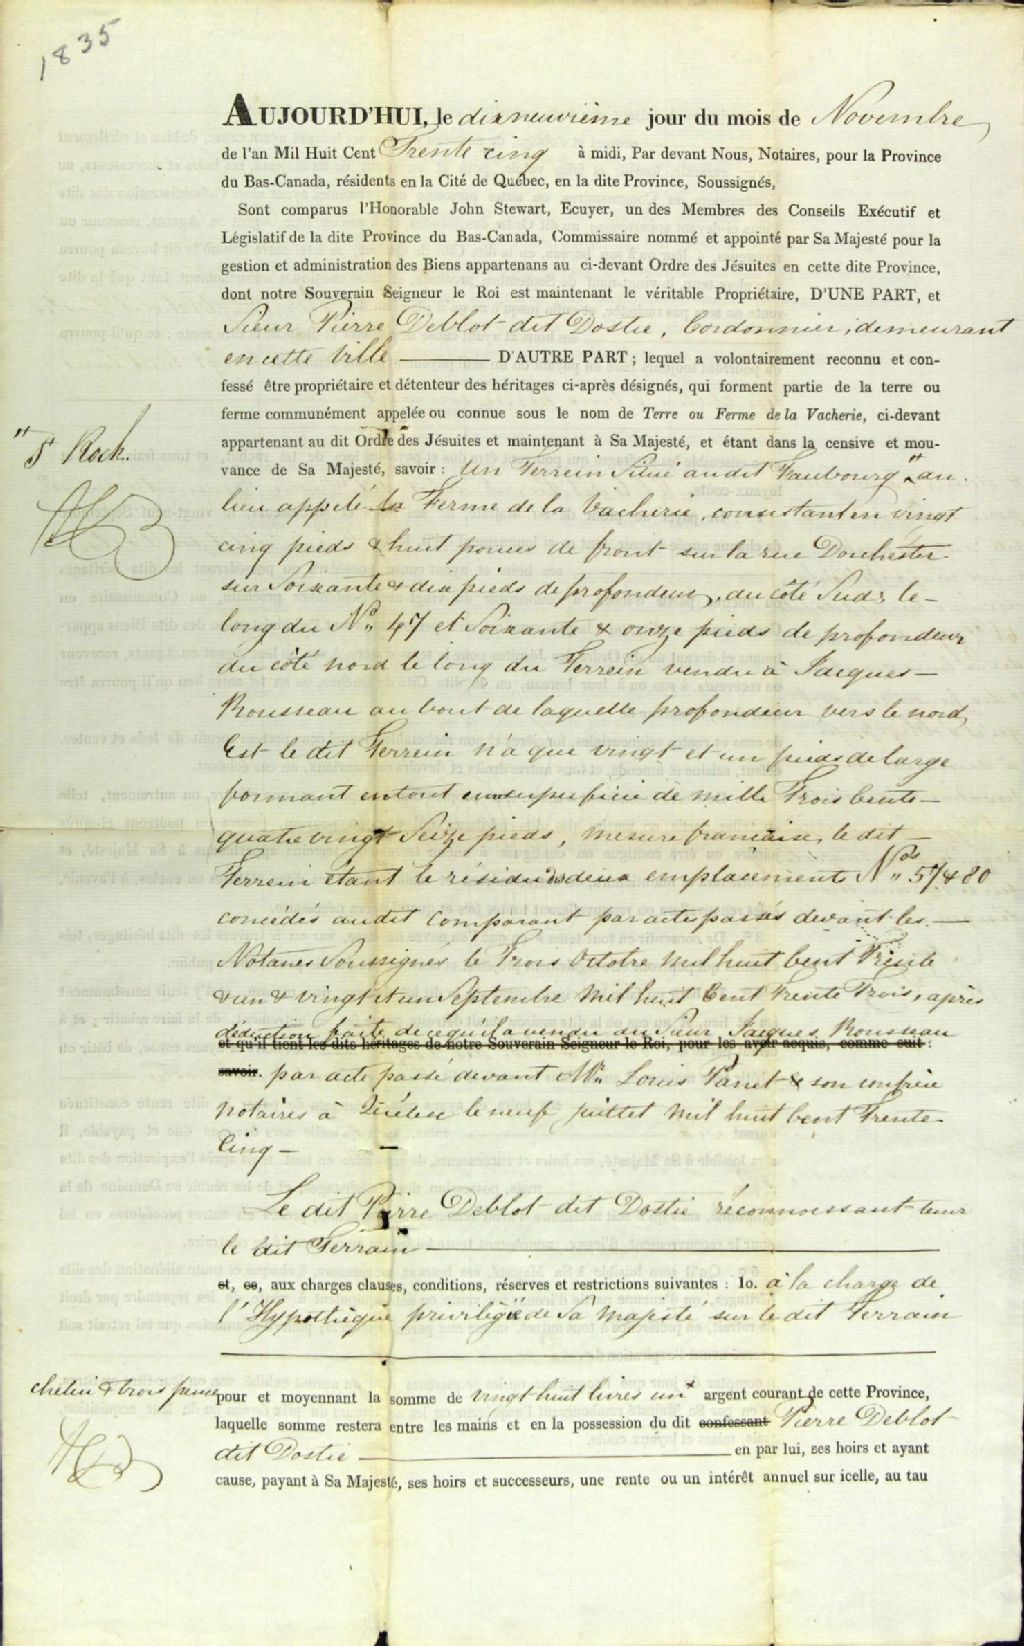 1835
AUJOURD'HUI, le dixneuvième jour du mois de Novembre
de l'an Mil Huit Cent Trente cinq à midi, Par devant Nous, Notaires, pour la Province
du Bas-Canada, résidents en la Cité de Québec, en la dite Province, Soussignés,
Sont comparus l'Honorable John Stewart, Ecuyer, un des Membres des Conseils Exécutif et
Législatif de la dite Province du Bas-Canada, Commissaire nommé et appointé par Sa Majesté pour la
gestion et administration des Biens appartenans au ci-devant Ordre des Jésuites en cette dite Province,
dont notre Souverain Seigneur le Roi est maintenant le véritable Propriétaire, D'UNE PART, et
Sieur Pierre Deblot dit Dostie, Cordonnier, demeurant
en cette Ville ——— D'AUTRE PART ; lequel a volontairement reconnu et con-
fessé être propriétaire et détenteur des héritages ci-après désignés, qui forment partie de la terre ou
ferme communément appelée ou connue sous le nom de Terre ou Ferme de la Vacherie, ci-devant
appartenant au dit Ordre des Jésuites et maintenant à Sa Majesté, et étant dans la censive et mou-
" St Roch.
vance de Sa Majesté, savoir : Un Terrein Situé au dit Faubourg " au
lieu appelé la Ferme de la Vacherie, consistant en vingt
cinq pieds & huit pouces de front sur la rue Dorchester
sur Soixante & dix pieds de profondeur, du côté Sud, le
long du No. 47 et Soixante & onze pieds de profondeur
du côté nord le long du Terrein vendu à Jacques
Rousseau au bout de laquelle profondeur vers le nord
Est le dit Terrein n'a que vingt et un pieds de large
formant en tout en superficie de mille Trois Cents
quatre vingt Seize pieds, mesure francaise, le dit
Terrein étant le résidu des deux emplacements Nos. 57 & 80
concédés au dit Comparant par actes passés devant les
Notaires Soussignés le Trois Octobre mil huit Cent Trente
& un & vingt et un Septembre mil huit Cent Trente Trois, après
déduction faite de ce qu'il a vendu au Sieur Jacques Rousseau
et qu'il tient les dits héritages de notre Souverain Seigneur le Roi, pour les avoir acquis, comme suit :
savoir. par acte passé devant Mtre Louis Panet & son confrère
notaires à Québec le neuf juillet mil huit Cent Trente
Cinq —
Le dit Pierre Deblot dit Dostie réconnoessant tenir
le dit Terrain
et, ce, aux charges clauses, conditions, réserves et restrictions suivantes : 1o. à la charge de
l'Hypothèque privilégiée de Sa Majesté sur le dit Terrain
chelin & trois pence
pour et moyennant la somme de vingt huit livres un argent courant de cette Province,
laquelle somme restera entre les mains et en la possession du dit confessant Pierre Deblot
dit Dostie ——— en par lui, ses hoirs et ayant
cause, payant à Sa Majesté, ses hoirs et successeurs, une rente ou un intérêt annuel sur icelle, au tau